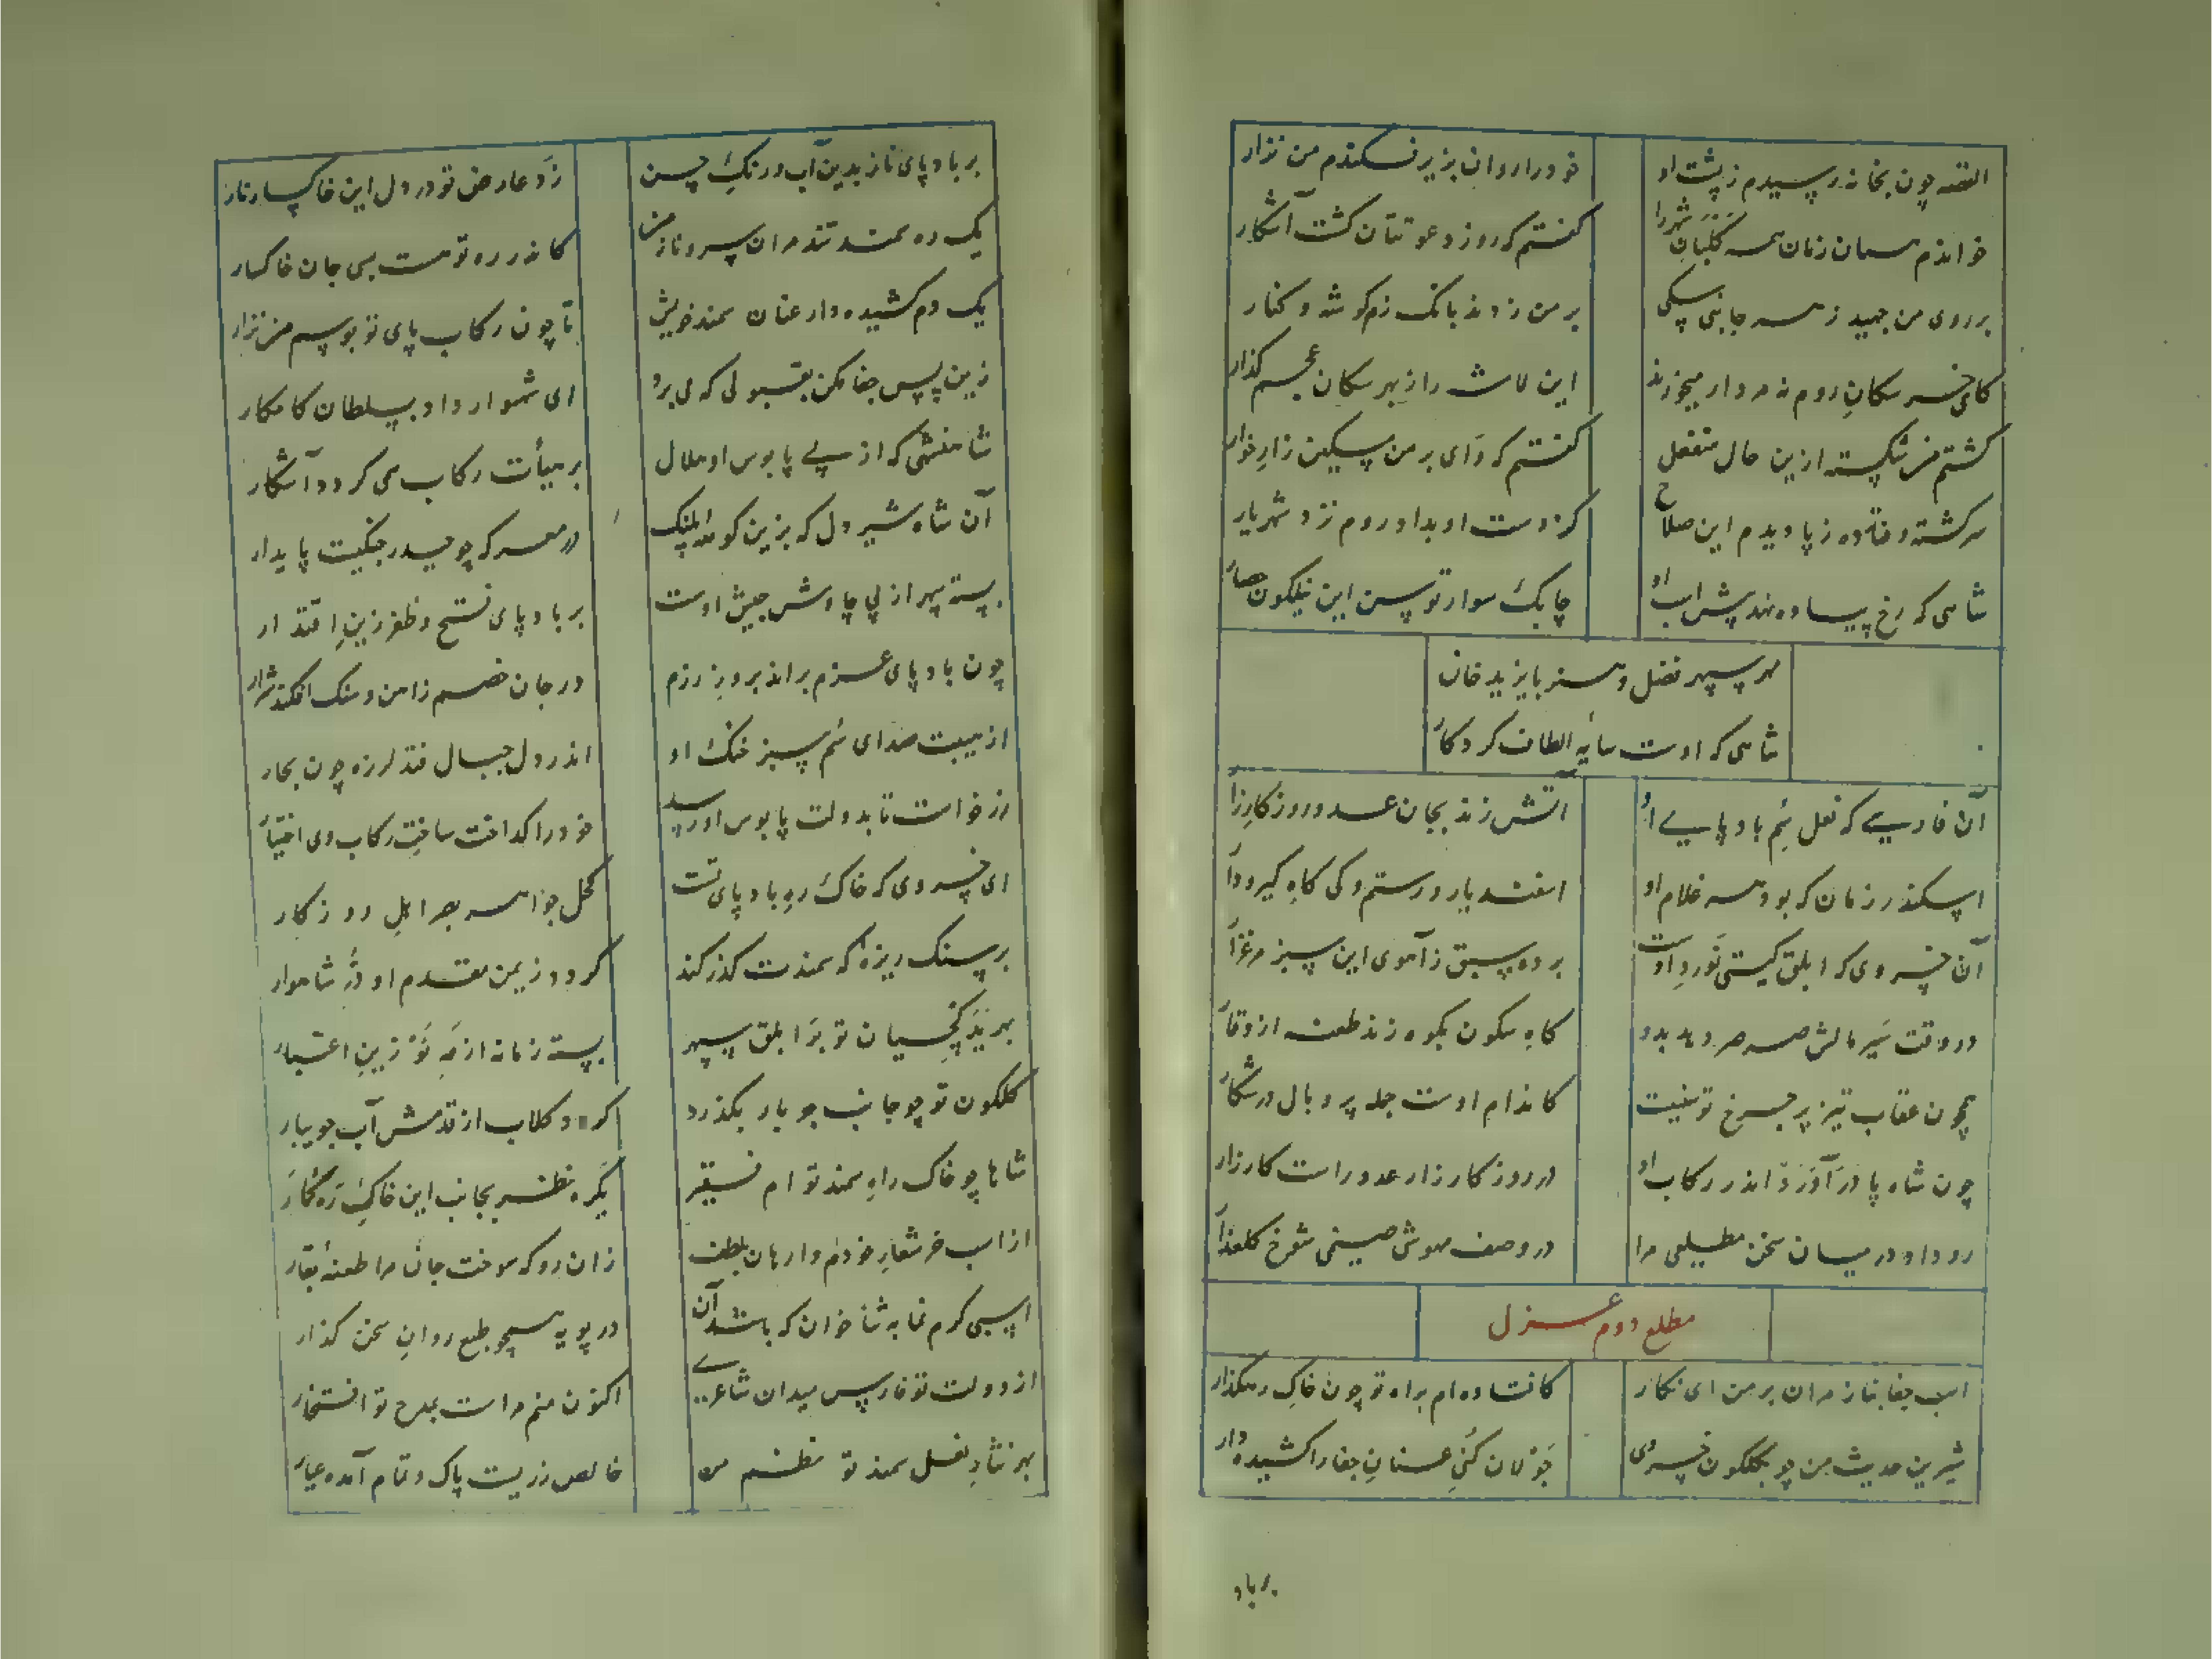 القصه چون بخانه رسیدم ز پشت او
خود را روان بزیر فکندم من نزار
خواندم همان زمان همه کلبان شهر را
گفتم که روز دعوتتان گشت آشکار
بر روی من جهید ز هر جانبی سکی
بر من زدند بانک زهر گوشه و کنار
کای خر سکان روم نه مردار میخورند
این لاشه را ز بهر سکان عجم گذار
گشتم من شکسته ازین حال منفعل
گفتم که وای بر من مسکین زار خوار
سرگشته و فتاده ز پا دیدم این صلاح
کز دست او بداد روم نزد شهریار
شاهی که رخ پیاده نهد پیش اسب او
چابک سوار توسن این نیلگون حصار
مهر سپهر فضل و هنر بایزید خان
شاهی که اوست سایه الطاف کردکار
آن فارسی که نعل سم باد پای او
آتش زند بجان عدو روز کارزار
اسکندر زمان که بود همه غلام او
اسفندیار و رستم و کی گاه گیر و دار
آن خسروی که ابلق گیتی نورد اوست
برده سبق ز آهوی این سبز مرغزار
در وقت سیر مالش صرصر دهد بدو
گاه سکون بکوه زند طعنه از وقار
همچون عقاب تیز پر چرخ توسنیست
کاندام اوست جمله پر و بال در شکار
چون شاه پا درآورد اندر رکاب او
در روز کارزار عدو راست کار زار
رو داد در میان سخن مطلعی مرا
در وصف مهوش صنمی شوخ گلعذار
مطلع دوم غزل
اسب جفا بناز مران بر من ای نگار
کافتاده‌ام براه تو چون خاک رهگذار
شیرین حدیث من چو بگلگون خسروی
جولان کنی عنان جفا را کشیده دار
برباد
بر باد پای ناز بدین آب و رنگ حسن
زد عارض تو در دل این خاکسار نار
یک ره سمند تند مران سرو ناز من
کاندر ره تو هست بسی جان خاکسار
یک دم کشیده دار عنان سمند خویش
تا چون رکاب پای تو بوسم من نزار
زین پس جفا مکن بقبولی که می برد
ای شهسوار داد بسلطان کامکار
شاهنشهی که از پی پابوس او هلال
بر هیأت رکاب همی گردد آشکار
آن شاه شیر دل که بزین کوهه پلنک
در معرکه چو حیدر جنگیست پایدار
بسته سپهر از پی چاوش جیش اوست
بر باد پای فتح و ظفر زین اقتدار
چون باد پای عزم براند بروز رزم
در جان خصم ز آهن و سنک افکند شرار
از هیبت صدای سم سبز خنک او
اندر دل جبال فتد لرزه چون بحار
زر خواست تا بدولت پابوس او رسید
خود را گداخت ساخت رکاب وی اختیار
ای خسروی که خاک ره باد پای تست
کحل جواهر بصر اهل روزکار
بر سنک ریزهٔ که سمندت گذر کند
گردد ز یمن مقدم او در شاهوار
بر ابلق سپهر
بسته زمانه از مه نو زین اعتبار
گلگون تو چو جانب جو بار بگذرد
گردد کلاب از قدمش آب جویبار
شاها چو خاک راه سمند توام فقیر
یکره نظر بجانب این خاک ره گمار
از اسب خر شعار خودم وارهان بلطف
زان رو که سوخت جان مرا طعنهٔ بقار
اسبی کرم نما به ثناخوان که باشد آن
در پویه همچو طبع روان سخن گذار
از دولت تو فارس میدان شاعری
اکنون منم مراست بمدح تو افتخار
بهر نثار نعل سمند تو نظم من
خالص زریست پاک و تمام آمده عیار